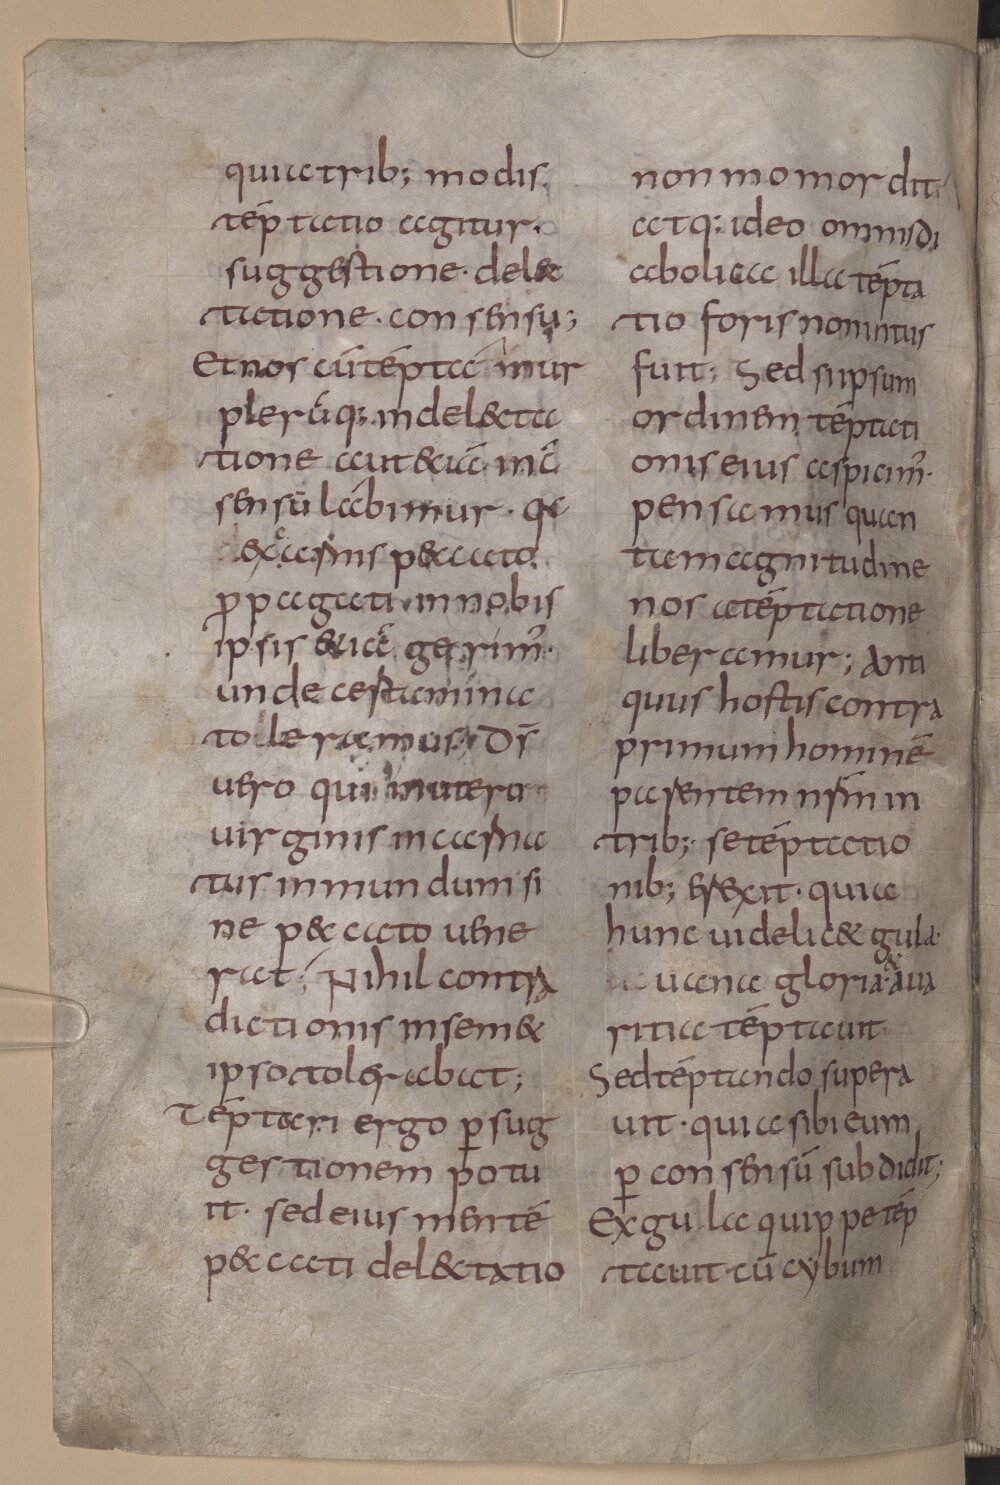 quia trib; modis
tēptatio agitur.
suggestione. delec
tatione. consensu;
Et nos cū tēptamur
plerūq; in delecta
tione aut etiā in cō
sensū labimur. Qꝫ
ex carnis peccato
ꝓpagati in nobis
ipsis etiā gerim᾽.
unde certamina
toleramus; Dꝭ
vero qui in utero
virginis incarna
tus in mundum si
ne peccato uene
rat; Nihil contra
dictionis in semet
ipso tolerabat;
Tēptari ergo ꝑ sug
gestionem potu
it. sed eius mentē
peccati delectatio
non momordit;
atq; ideo omnis di
abolica illa tēpta
tio foris non intus
fuit; Sed si ipsum
ordinem tēptati
onis eius aspicim᾽.
pensamus quan
ta magnitudine
nos a tēptatione
liberamur; Anti
quus hostis contra
primum hominē
parentem nr̄m in
trib; se tēptatio
nib; erexit. quia
hunc uidelicet gula.
uana gloria. & aua
ritia tēptauit
Sed tēptando supera
uit. quia sibi eum
ꝑ consensū subdidit;
Ex gula quippe tēp
tauit. cū cybum